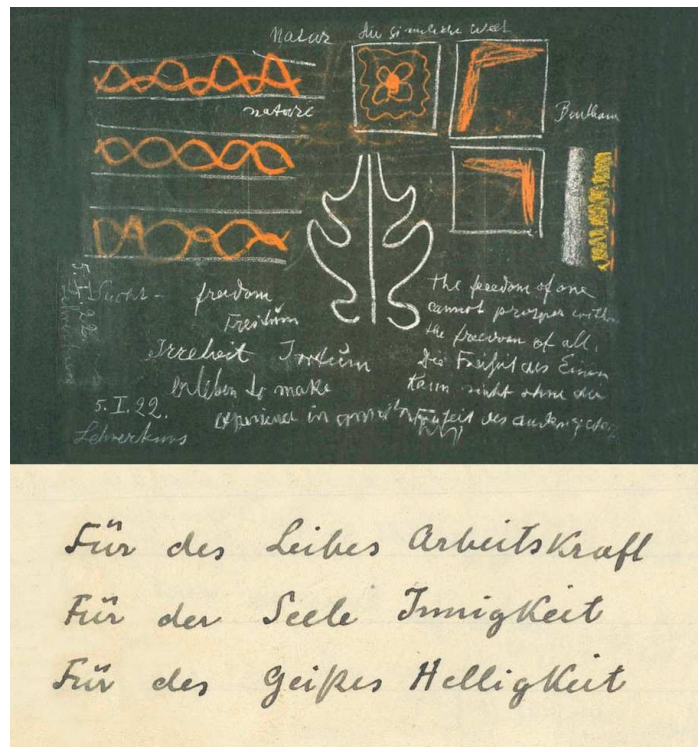 Natur die sinnliche Welt
nature
Bentham
freedom
Freitum
Irreheit Irrtum
erleben to make
experience in
5.I.22.
Lehrerkurs
the freedom of one
cannot prosper witho
the freedom of all.
Die Freiheit des Einen
kann nicht ohne die
Freiheit des anderen
Für des Leibes Arbeitskraft
Für der Seele Innigkeit
Für des Geistes Helligkeit